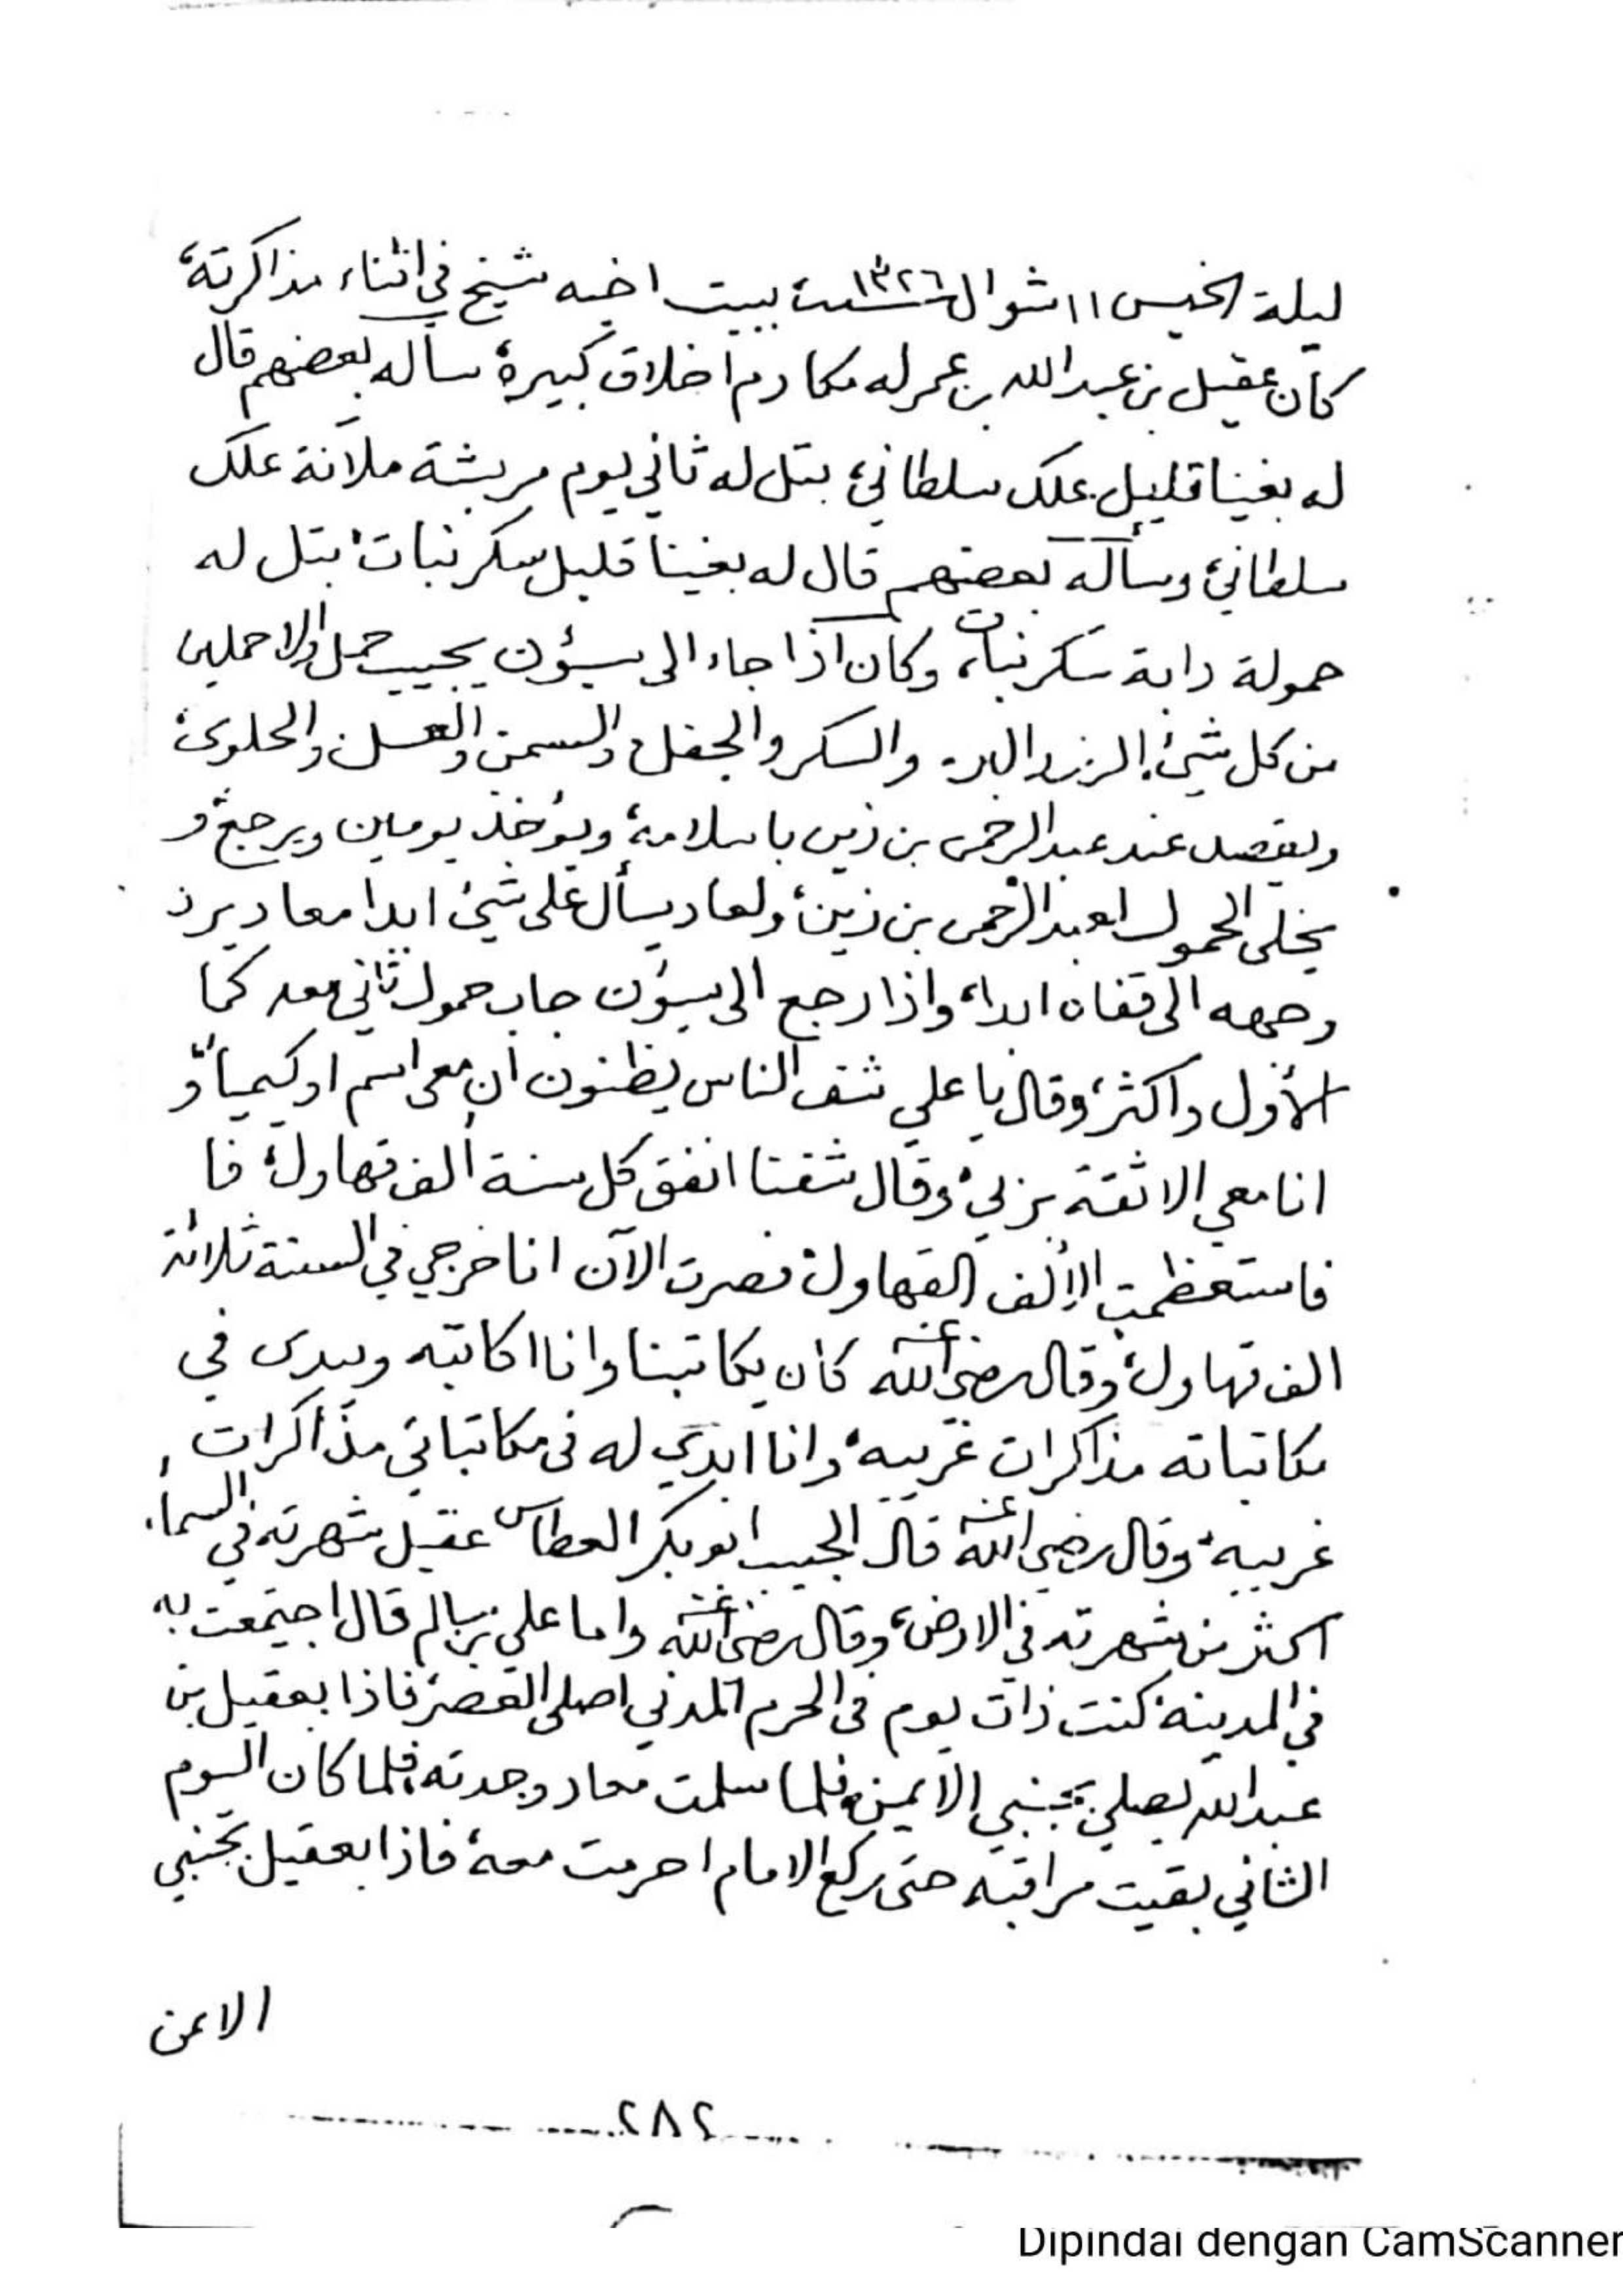 ليلة الخميس ١١ شوال سنة ١٣٢٦ ببيت اخيه شيخ في اثناء مذاكرته
كان عقيل بن عبدالله بن عمر له مكارم اخلاق كبيرة سأله بعضهم قال
له بغينا قليل علك سلطاني بتل له ثاني يوم مريشة ملآنة علك
سلطاني وسأله بعضهم قال له بغينا قليل سكر نبات بتل له
حمولة دابة سكر نبات وكان اذا جاء الى سيؤن يجيب حمل والا حملين
من كل شيئ الرز والبر والسكر والجفل والسمن والعسل والحلوى
ويقصد عند عبدالرحمن بن زين باسلامة ويؤخذ يومين ويرجع و
يخلى الحمول لعبدالرحمن بن زين ولعاد يسأل على شيئ ابدا معاد يرد
وجهه الى قفاه ابدا واذا رجع الى سيؤن جاب حمول ثاني معه كما
الأول واكثر وقال يا علي شف الناس يظنون ان معى اسم او كيميا و
انا معي الا ثقة بربي وقال شفنا انفق كل سنة ألف قهاول فا
فاستعظمت الالف القهاول فصرت الآن انا خرجي في السنة ثلاثة
الف قهاول وقال رضي الله عنه كان يكاتبنا وانا اكاتبه ويبدى في
مكاتباته مذاكرات غريبه وانا ابدي له في مكاتباتي مذاكرات
غريبه وقال رضي الله عنه قال الحبيب ابوبكر العطاس عقيل شهرته في السماء
اكثر من شهرته في الارض وقال رضي الله عنه واما علي بن سالم قال اجتمعت به
في المدينه كنت ذات يوم في الحرم المدني اصلي العصر فاذا بعقيل بن
عبدالله يصلي بجنبي الايمن فلما سلمت معاد وجدته فلما كان اليوم
الثاني بقيت مراقبه حتى ركع الامام احرمت معه فاذا بعقيل بجنبي
الايمن
٢٨٢
Dipindai dengan CamScanner